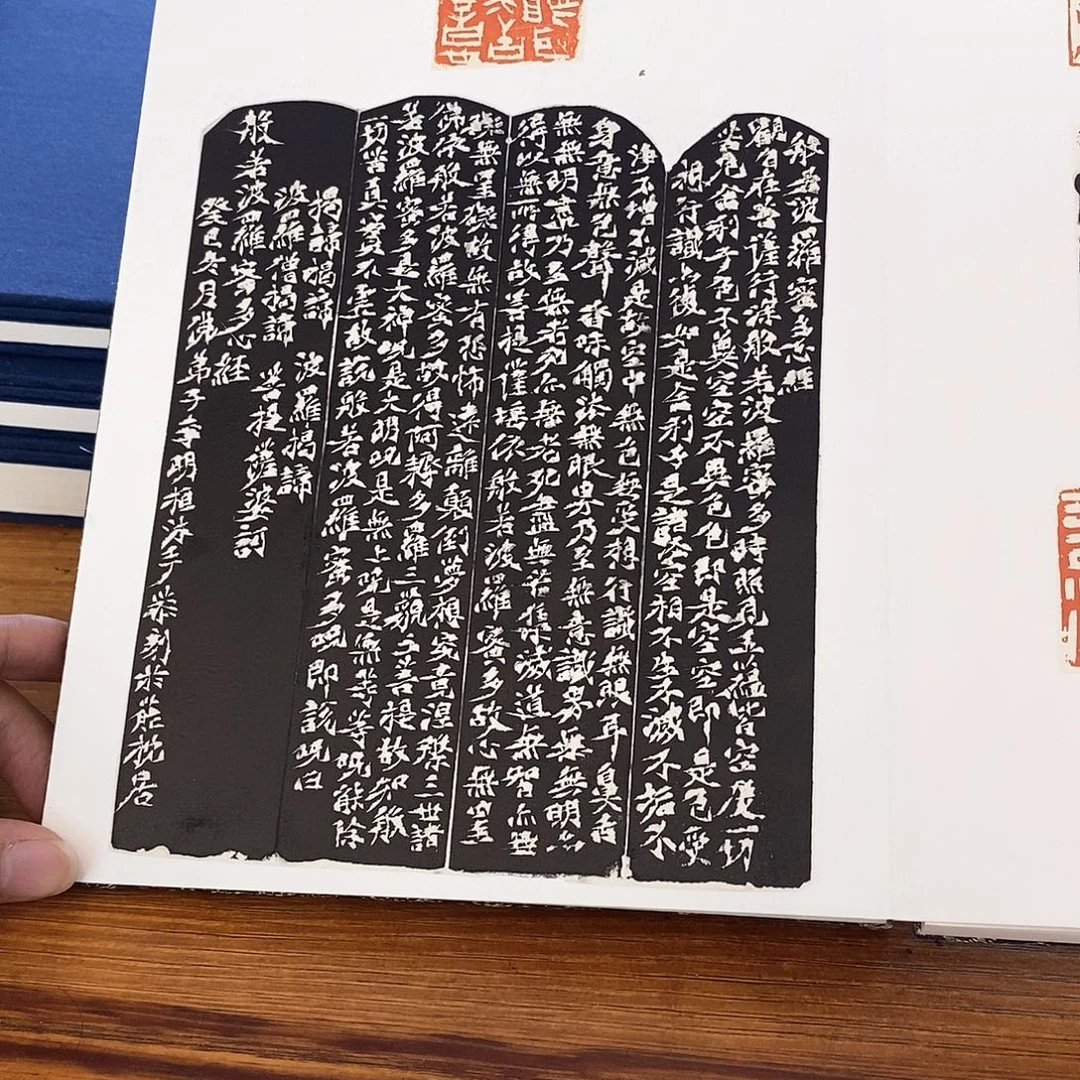 般若波羅蜜多心經
觀自在菩薩行深般若波羅蜜多時照見五蘊皆空度一切
苦厄舍利子色不異空空不異色色即是空空即是色受
想行識亦復如是舍利子是諸法空相不生不滅不垢不
淨不增不減是故空中無色無受想行識無眼耳鼻舌
身意無色聲香味觸法無眼界乃至無意識界無無明亦
無無明盡乃至無老死亦無老死盡無苦集滅道無智亦無
得以無所得故菩提薩埵依般若波羅蜜多故心無罣
礙無罣礙故無有恐怖遠離顛倒夢想究竟涅槃三世諸
佛依般若波羅蜜多故得阿耨多羅三藐三菩提故知般
若波羅蜜多是大神呪是大明呪是無上呪是無等等呪能除
一切苦真實不虛故說般若波羅蜜多呪即說呪曰
揭諦揭諦 波羅揭諦
波羅僧揭諦 菩提薩婆訶
般若波羅蜜多心經
癸巳冬月佛弟子明桓沐手恭刻居